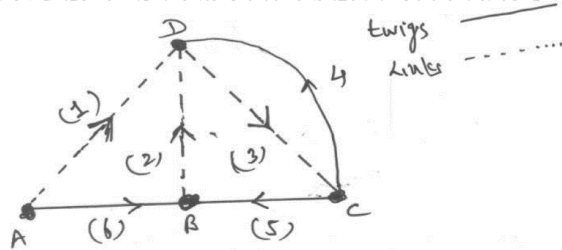 D
twigs
Links
4
(1)
(2)
(3)
A
(6)
B
(5)
C